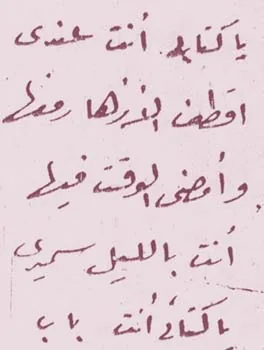 يا كتابي أنت عندي
اقطف الأزهار منها
وأمضي الوقت فيها
أنت بالليل سميري
يا كتابي أنت باب